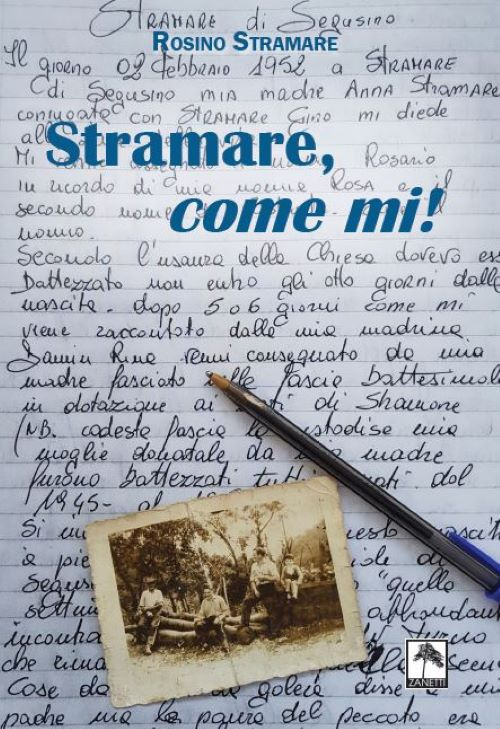 STRAMARE di Segusino
ROSINO STRAMARE
Il giorno 02 Febbraio 1952 a STRAMARE
di Segusino mia madre Anna STRAMARE
coniugata con STRAMARE Gino mi diede
Stramare,
Mi Rosario
in ricordo di mia nonna ROSA e il
come mi!
secondo nome
nonno.
Secondo l'usanza della Chiesa dovevo ess
battezzato non entro gli otto giorni dalla
nascita. dopo 5 o 6 giorni come mi
viene raccontato dalla mia madrina
Damin Rina venni consegnato da mia
madre fasciato nella fascia battesimale
in dotazione ai nati di Stramare
(NB. codesta fascia la custodisce mia
moglie donatale da mia madre
furono battezzati tutti i nati dal
1945- al
Si in questo nascit
a pie di
Segus "quello
settim abbondant
incontra
che rima scen
Cose da in golera disse a mi
padre ma la paura del peccato era
ZANETTI